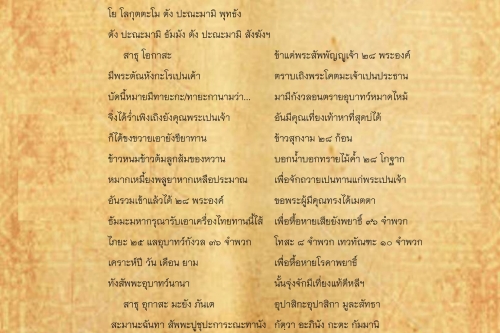 โย โลกุตตะโม ตัง ปะณะมามิ พุทธัง
ตัง ปะณะมามิ ธัมมัง ตัง ปะณะมามิ สังฆังฯ
สาธุ โอกาสะ ข้าแต่พระสัพพัญญูเจ้า ๒๘ พระองค์
มีพระตัณหังกะโรเปนเค้า ตราบเถิงพระโคตมะเจ้าเปนประธาน
บัดนี้หมายมีทายะกะ/ทายะกานามว่า... มามีกังวลอนตรายอุบาทว์หมาดไหม้
จึงได้ร่ำเพิงเถิงยังคุณพระเปนเจ้า อันมีคุณเที่ยงเท้าหาที่สุดบ่ได้
ก็ได้ขงขวายเอายังขียาทาน ข้าวสุกงาม ๒๘ ก้อน
ข้าวหนมข้าวต้มลูกส้มของหวาน บอกน้ำบอกทรายไม้ค้ำ ๒๘ โกฐาก
หมากเหมี้ยงพลูยาหากเหลือประมาณ เพื่อจักถวายเปนทานแก่พระเปนเจ้า
อันรวมเข้าแล้วได้ ๒๘ พระองค์ ขอพระผู้มีคุณทรงได้เมตตา
ธัมมะมหากรุณารับเอาเครื่องไทยทานนี้ไส้ เพื่อหื้อหายเสียยังพยาธิ์ ๙๖ จำพวก
ไภยะ ๒๕ แลอุบาทว์กังวล ๓๖ จำพวก โทสะ ๘ จำพวก เทวทัณฑะ ๑๐ จำพวก
เคราะห์ปี วัน เดือน ยาม เพื่อหื้อหายโรคาพยาธิ์
ทังสัพพะอุบาทว์นานา นั้นจุ่งจักมีเที่ยงแท้ดีหลีฯ
สาธุ อุกาสะ มะยัง ภันเต อุปาสิกะอุปาสิกา มูละสัทธา
สะมานะฉันทา สัพพะปูชุปะการะณะทานัง กัตวา อะภินัง กะตะ กัมมานิ